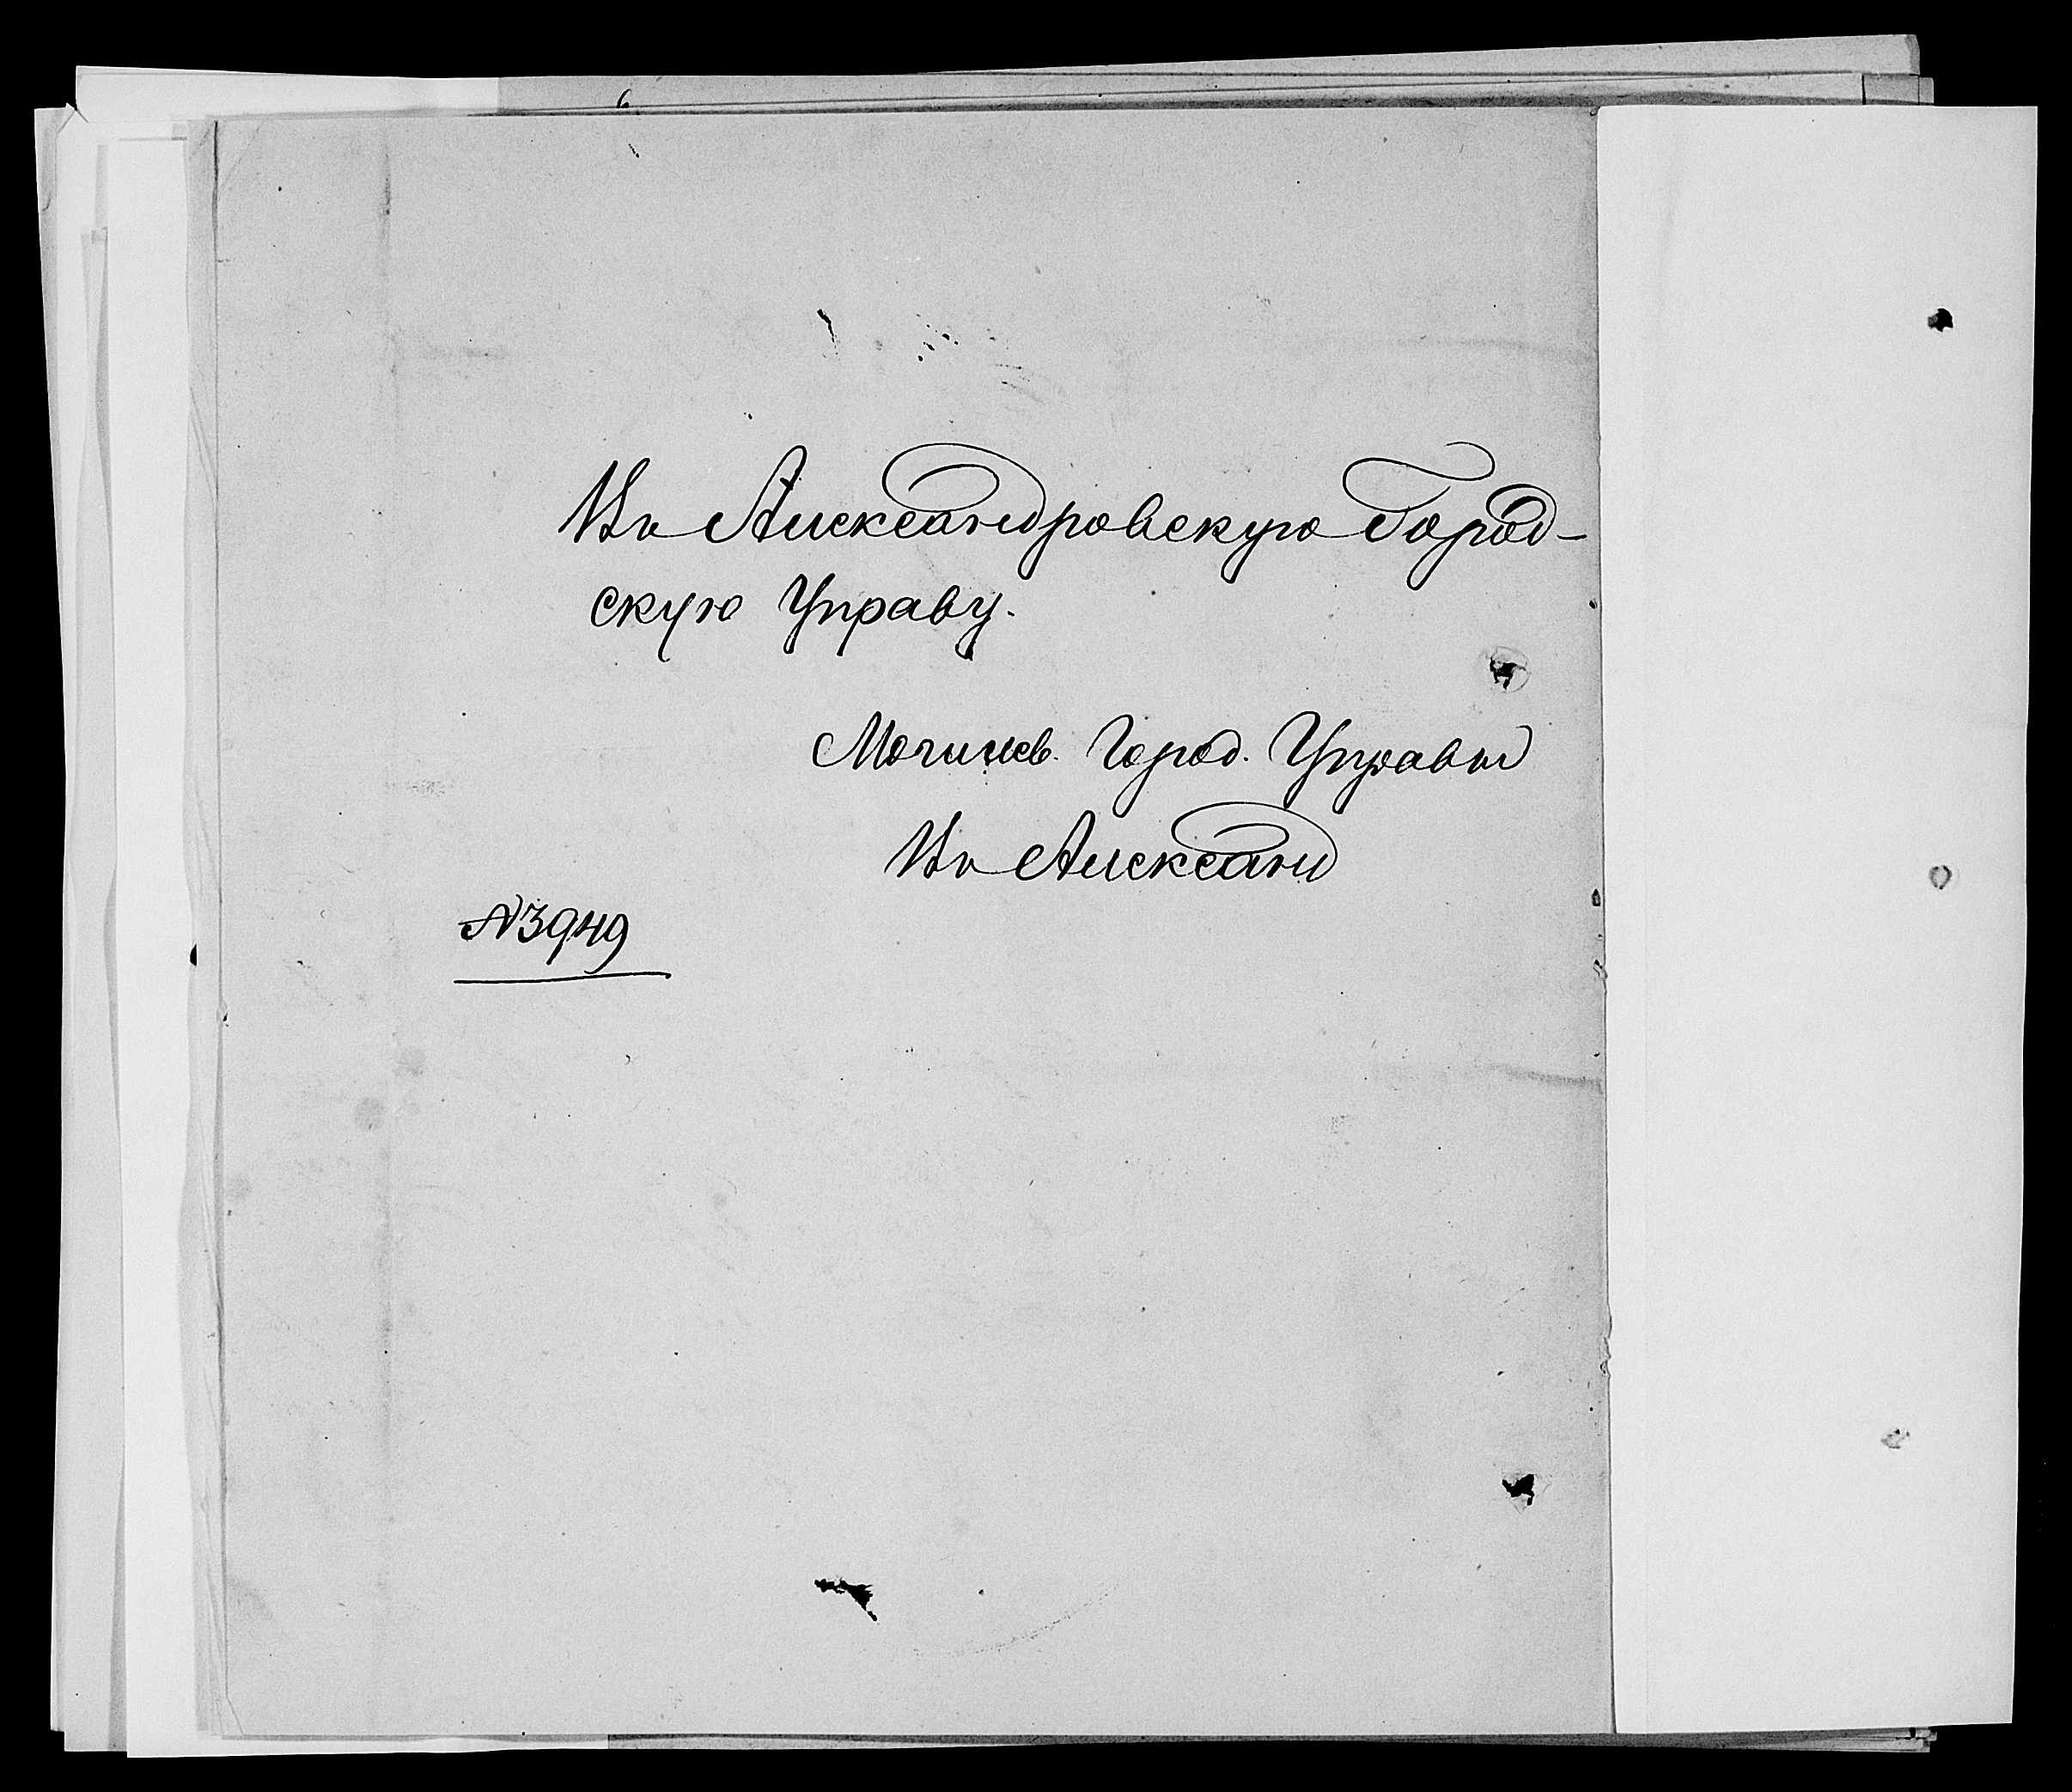 Въ Александровскую Город-
скую Управу.
Могилев. Город. Управы
Въ Александ
№3949